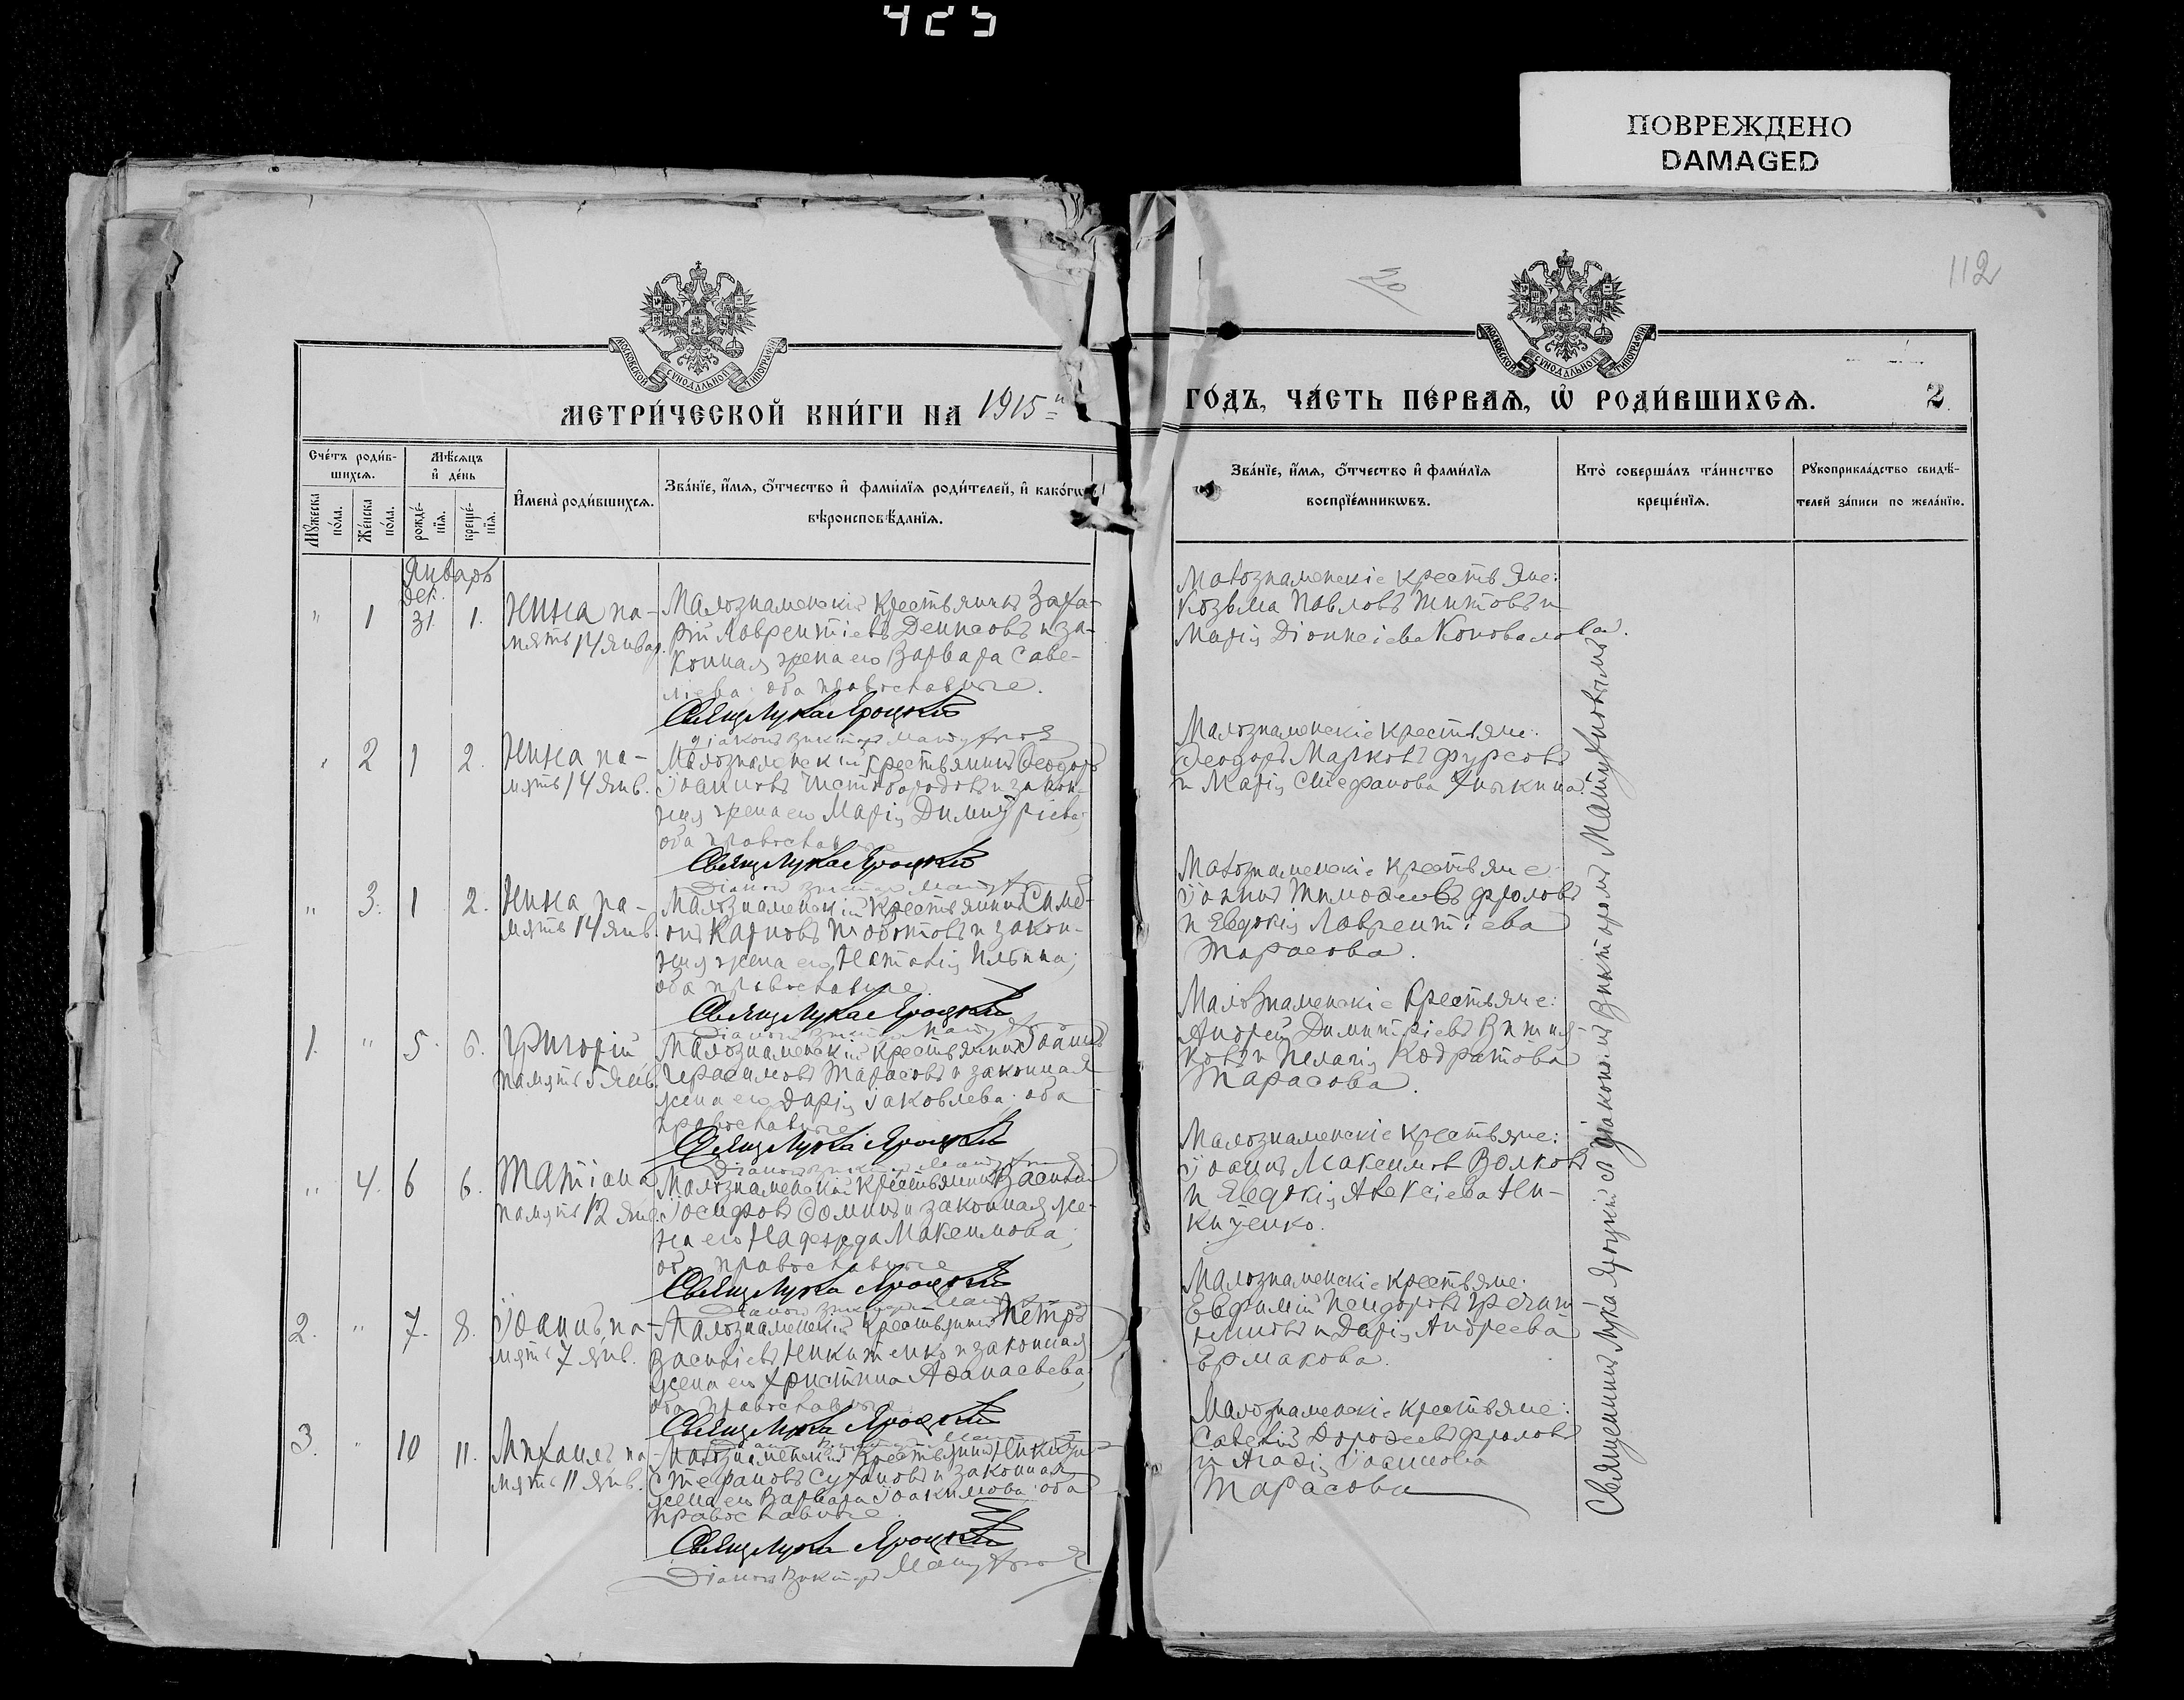 425
ПОВРЕЖДЕНО
DAMAGED
112
МОСКОВСКОЙ СѴНОДАЛЬНОЙ ТИПОГРАФІИ
МОСКОВСКОЙ СѴНОДАЛЬНОЙ ТИПОГРАФІИ
МЕТРИ́ЧЕСКОЙ КНИ́ГИ НА 1915 й
ГОДЪ, ЧА́СТЬ ПЕ́РВАѦ, Ѡ҆ РОДИ́ВШИХСѦ. 2
Сче́тъ роди́в-
шихсѧ.
Мꙋ́жеска по́ла.
Же́нска по́ла.
Мѣ́сѧцъ
и҆ де́нь
рожде́-нїѧ.
креще́-нїѧ.
И҆мена̀ роди́вшихсѧ.
Зва́нїе, и҆́мѧ, ѻ҆́тчество и҆ фами́лїѧ роди́телей, и҆ како́гѡ
вѣроисповѣ́данїѧ.
Зва́нїе, и҆́мѧ, ѻ҆́тчество и҆ фами́лїѧ
воспрїе́мникѡвъ.
Кто̀ соверша́лъ та́инство
креще́нїѧ.
Рꙋкоприкла́дство свидѣ́-
телей за́писи по жела́нїю.
Январь
Дек.
" 1 31 1.
Нина па-
мять 14 январ.
Малознаменскій крестьянинъ Заха-
рій Лаврентіевъ Денисовъ и за-
конная жена его Варвара Саве-
ліева; оба православные.
Свящ Лука Яроцкій
Діаконъ Викторъ Матухновъ
Малознаменскіе крестьяне:
Козьма Павловъ Титовъ и
Марія Діонисіева Коновалова.
" 2 1 2.
Нина па-
мять 14 янв.
Малознаменскій крестьянинъ Ѳеодоръ
Іоанновъ и закон-
ная жена его Марія Димитріева;
оба православные
Свящ Лука Яроцкій
Діаконъ Викторъ Матухновъ
Малознаменскіе крестьяне:
Ѳеодоръ Марковъ Фурсовъ
и Марія Стефанова
" 3. 1 2.
Нина па-
мять 14 янв.
Малознаменскій крестьянинъ Симе-
онъ Карповъ и закон-
ная жена его Наталія Ильина;
оба православные.
Свящ Лука Яроцкій
Діаконъ Викторъ Матухновъ
Малознаменскіе крестьяне
Іоаннъ Тимоѳеевъ Фроловъ
и Евдокія Лаврентіева
Тарасова.
1. " 5. 6.
Григорій
память 5 янв.
Малознаменскій крестьянинъ Іоаннъ
Герасимовъ Тарасовъ и законная
жена его Дарія Іаковлева; оба
православные
Свящ Лука Яроцкій
Діаконъ Викторъ Матухновъ
Малознаменскіе крестьяне:
Андрей Димитріевъ
и Пелагія Кодратова
Тарасова.
" 4. 6 6.
Татіана
память 12 янв.
Малознаменскій крестьянинъ Василій
Іосифовъ Ѳоминъ и законная же-
на его Надежда Максимова;
оба православные
Свящ Лука Яроцкій
Діаконъ Викторъ Матухновъ
Малознаменскіе крестьяне:
Іоаннъ Максимовъ Волковъ
и Евдокія Алексіева Ни-
китенко.
2. " 7. 8.
Іоаннъ, па-
мять 7 янв.
Малознаменскій крестьянинъ Петръ
Василіевъ Никитенко и законная
жена его Христина Аѳанасьева;
оба православные
Свящ Лука Яроцкій
Діаконъ Викторъ Матухновъ
Малознаменскіе крестьяне:
Евфимій
и Дарія Андреева
Ермакова.
3. " 10 11.
Михаилъ па-
мять 11 янв.
Малознаменскій крестьянинъ
Стефановъ Сухановъ и законная
жена его Варвара Іоакимова; оба
православные
Свящ Лука Яроцкій
Діаконъ Викторъ Матухновъ
Малознаменскіе крестьяне:
Савелій Дороѳеевъ Фроловъ
и Агаѳія
Тарасова
Священникъ Лука Яроцкій съ діакономъ Викторомъ Матухновымъ